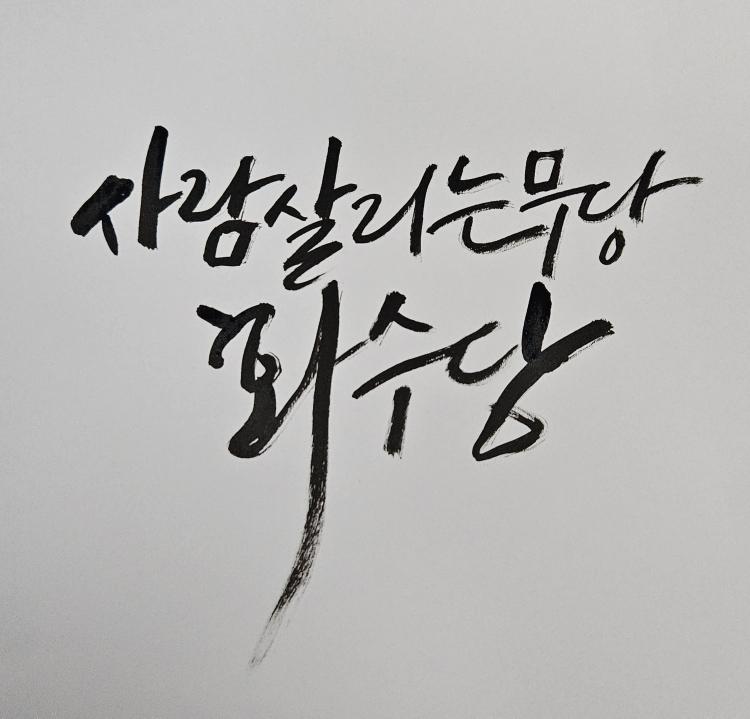 사람살리는무당
화수당